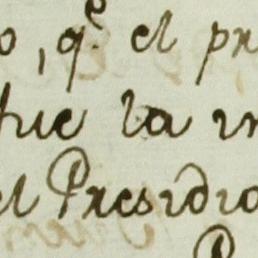 o, qe. el pr
fue la in
el Presidio